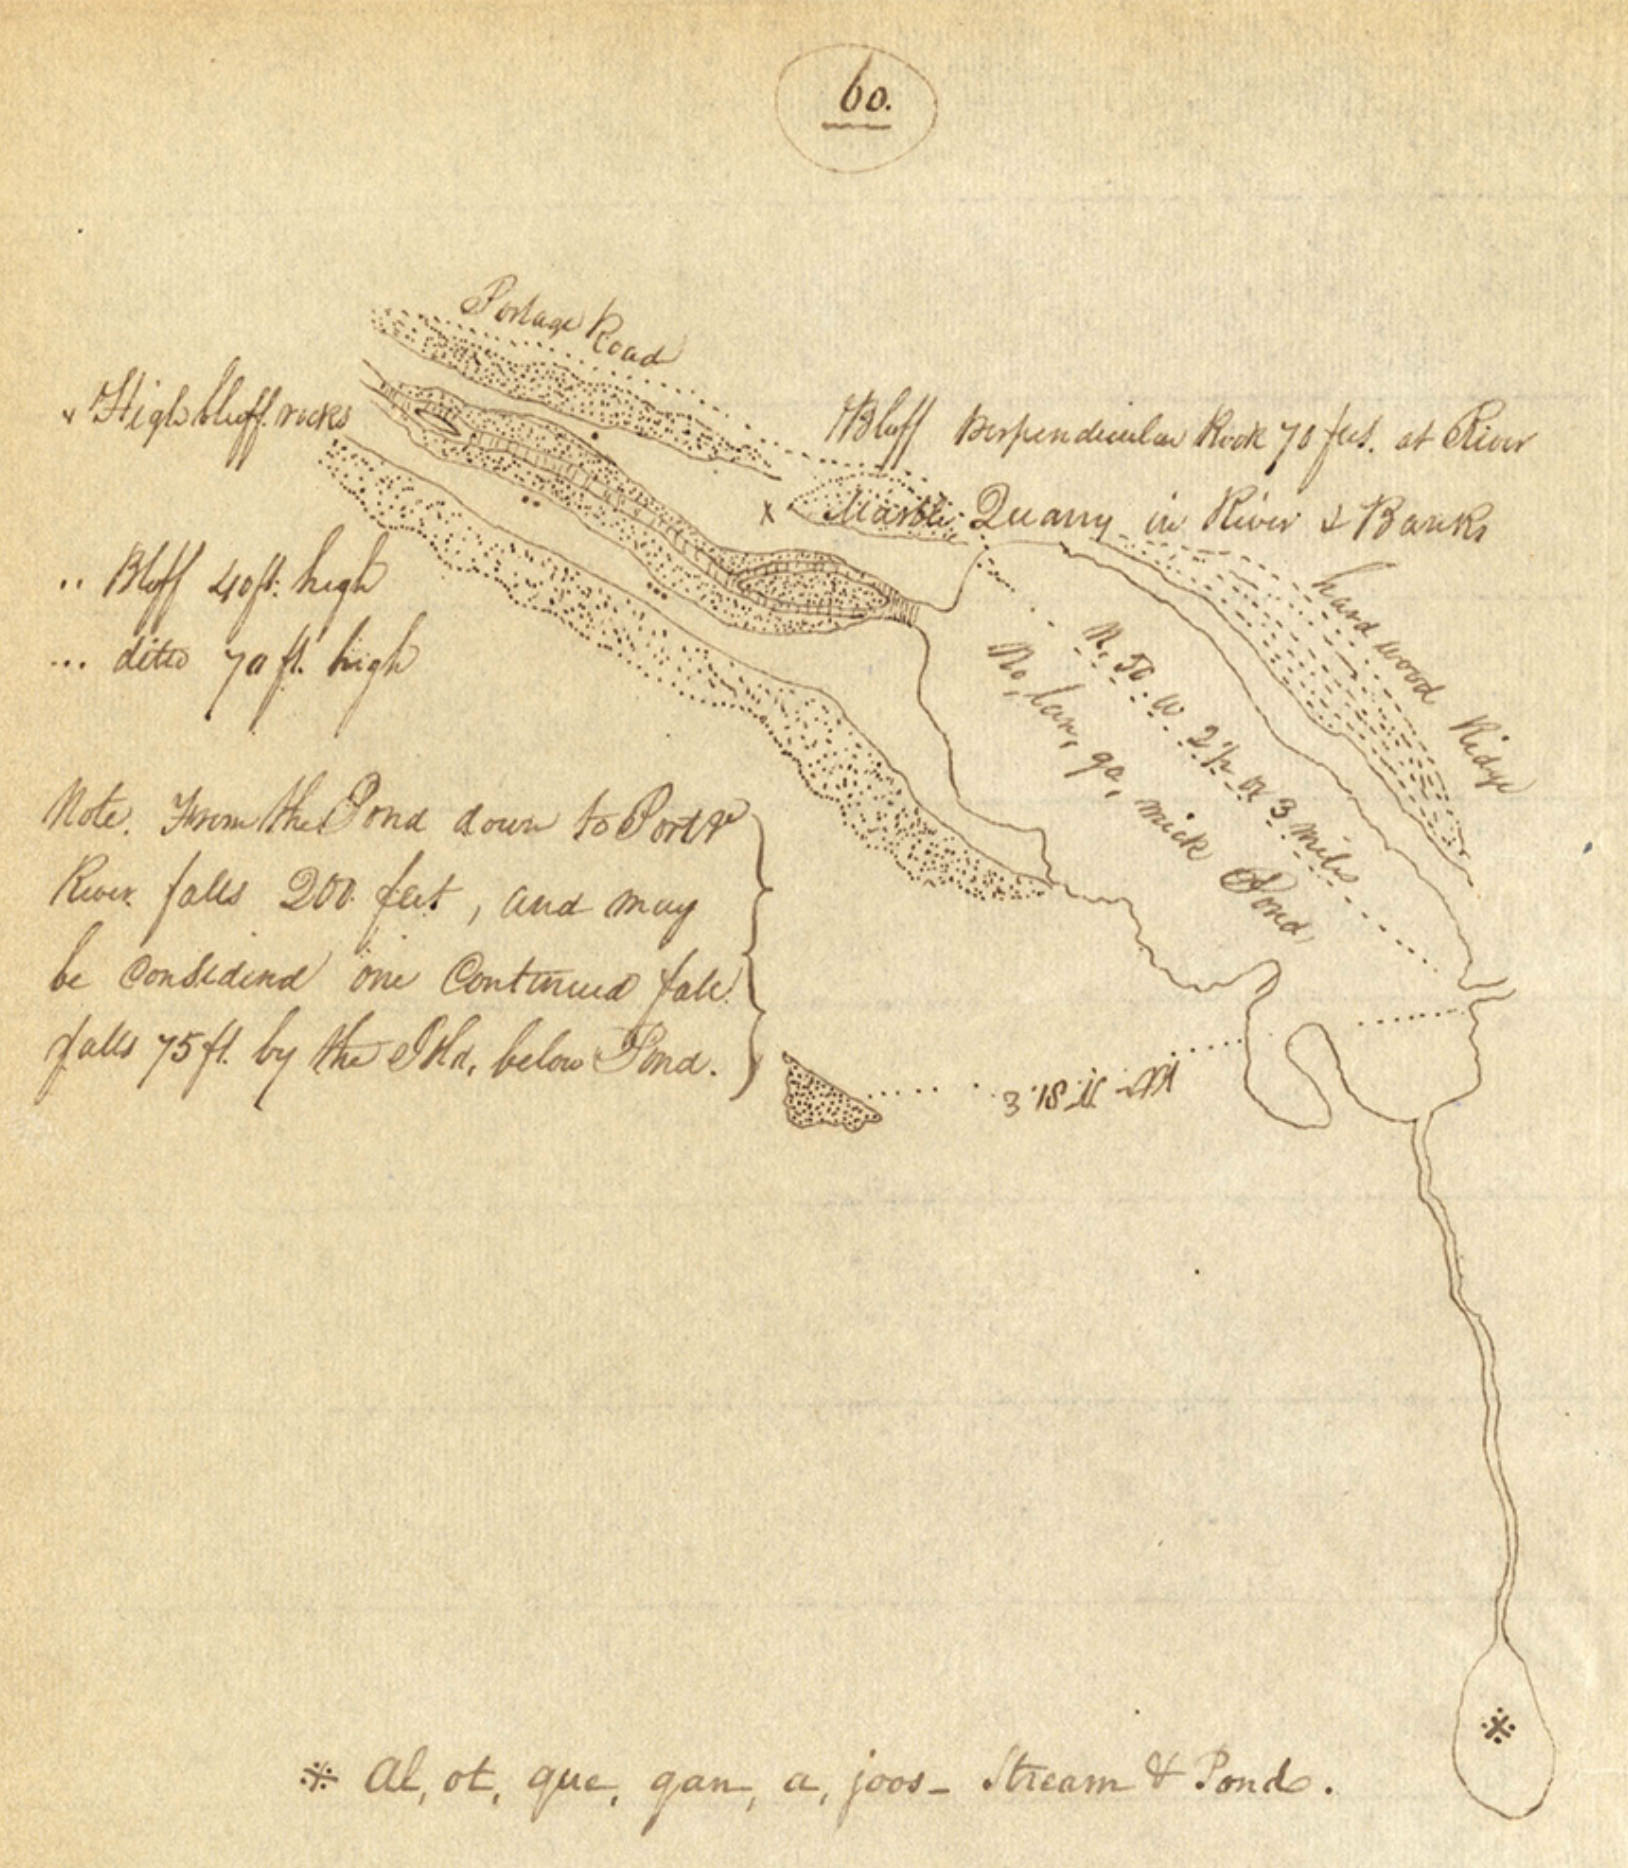 60.
Portage Road
x High bluff rocks
Bluff Perpendicular Rock 70 feet. at River
x Marble Quarry in River & Banks
hard wood Ridge
.. Bluff 40 ft. high
... ditto 70 ft. high
N. 50. W. 2½ or 3 miles
No, lan, ga, mick Pond,
Note. From the Pond down to Port&
River falls 200 feet, and may
be considerd one Continued fall.
falls 75 ft. by the Isld, below Pond.
※ Al, ot, que, gan, a, joos - Stream & Pond.